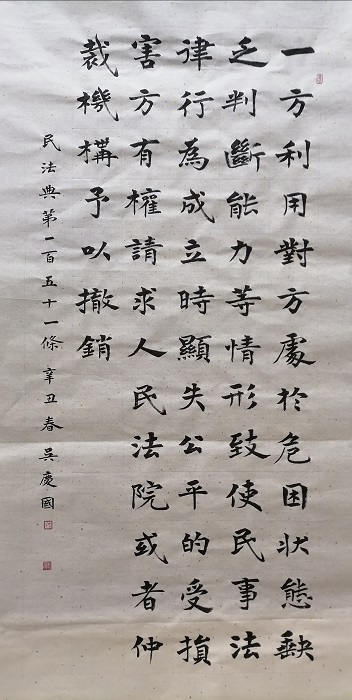 一方利用對方處於危困狀態缺
乏判斷能力等情形致使民事法
律行為成立時顯失公平的受損
害方有權請求人民法院或者仲
裁機構予以撤銷
民法典第一百五十一條 辛丑春 吴慶國